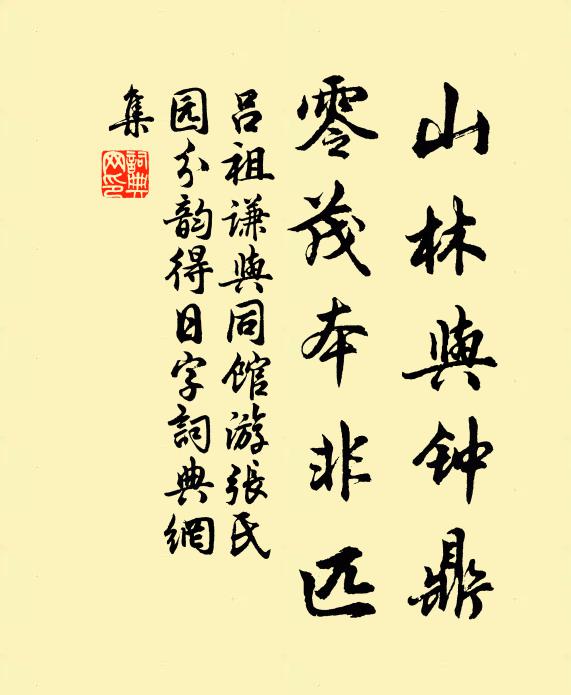 山林與钟鼎
零茂本非匹
吕祖谦與同馆游張氏
园分韵得日字詞典網
集
詞典網印